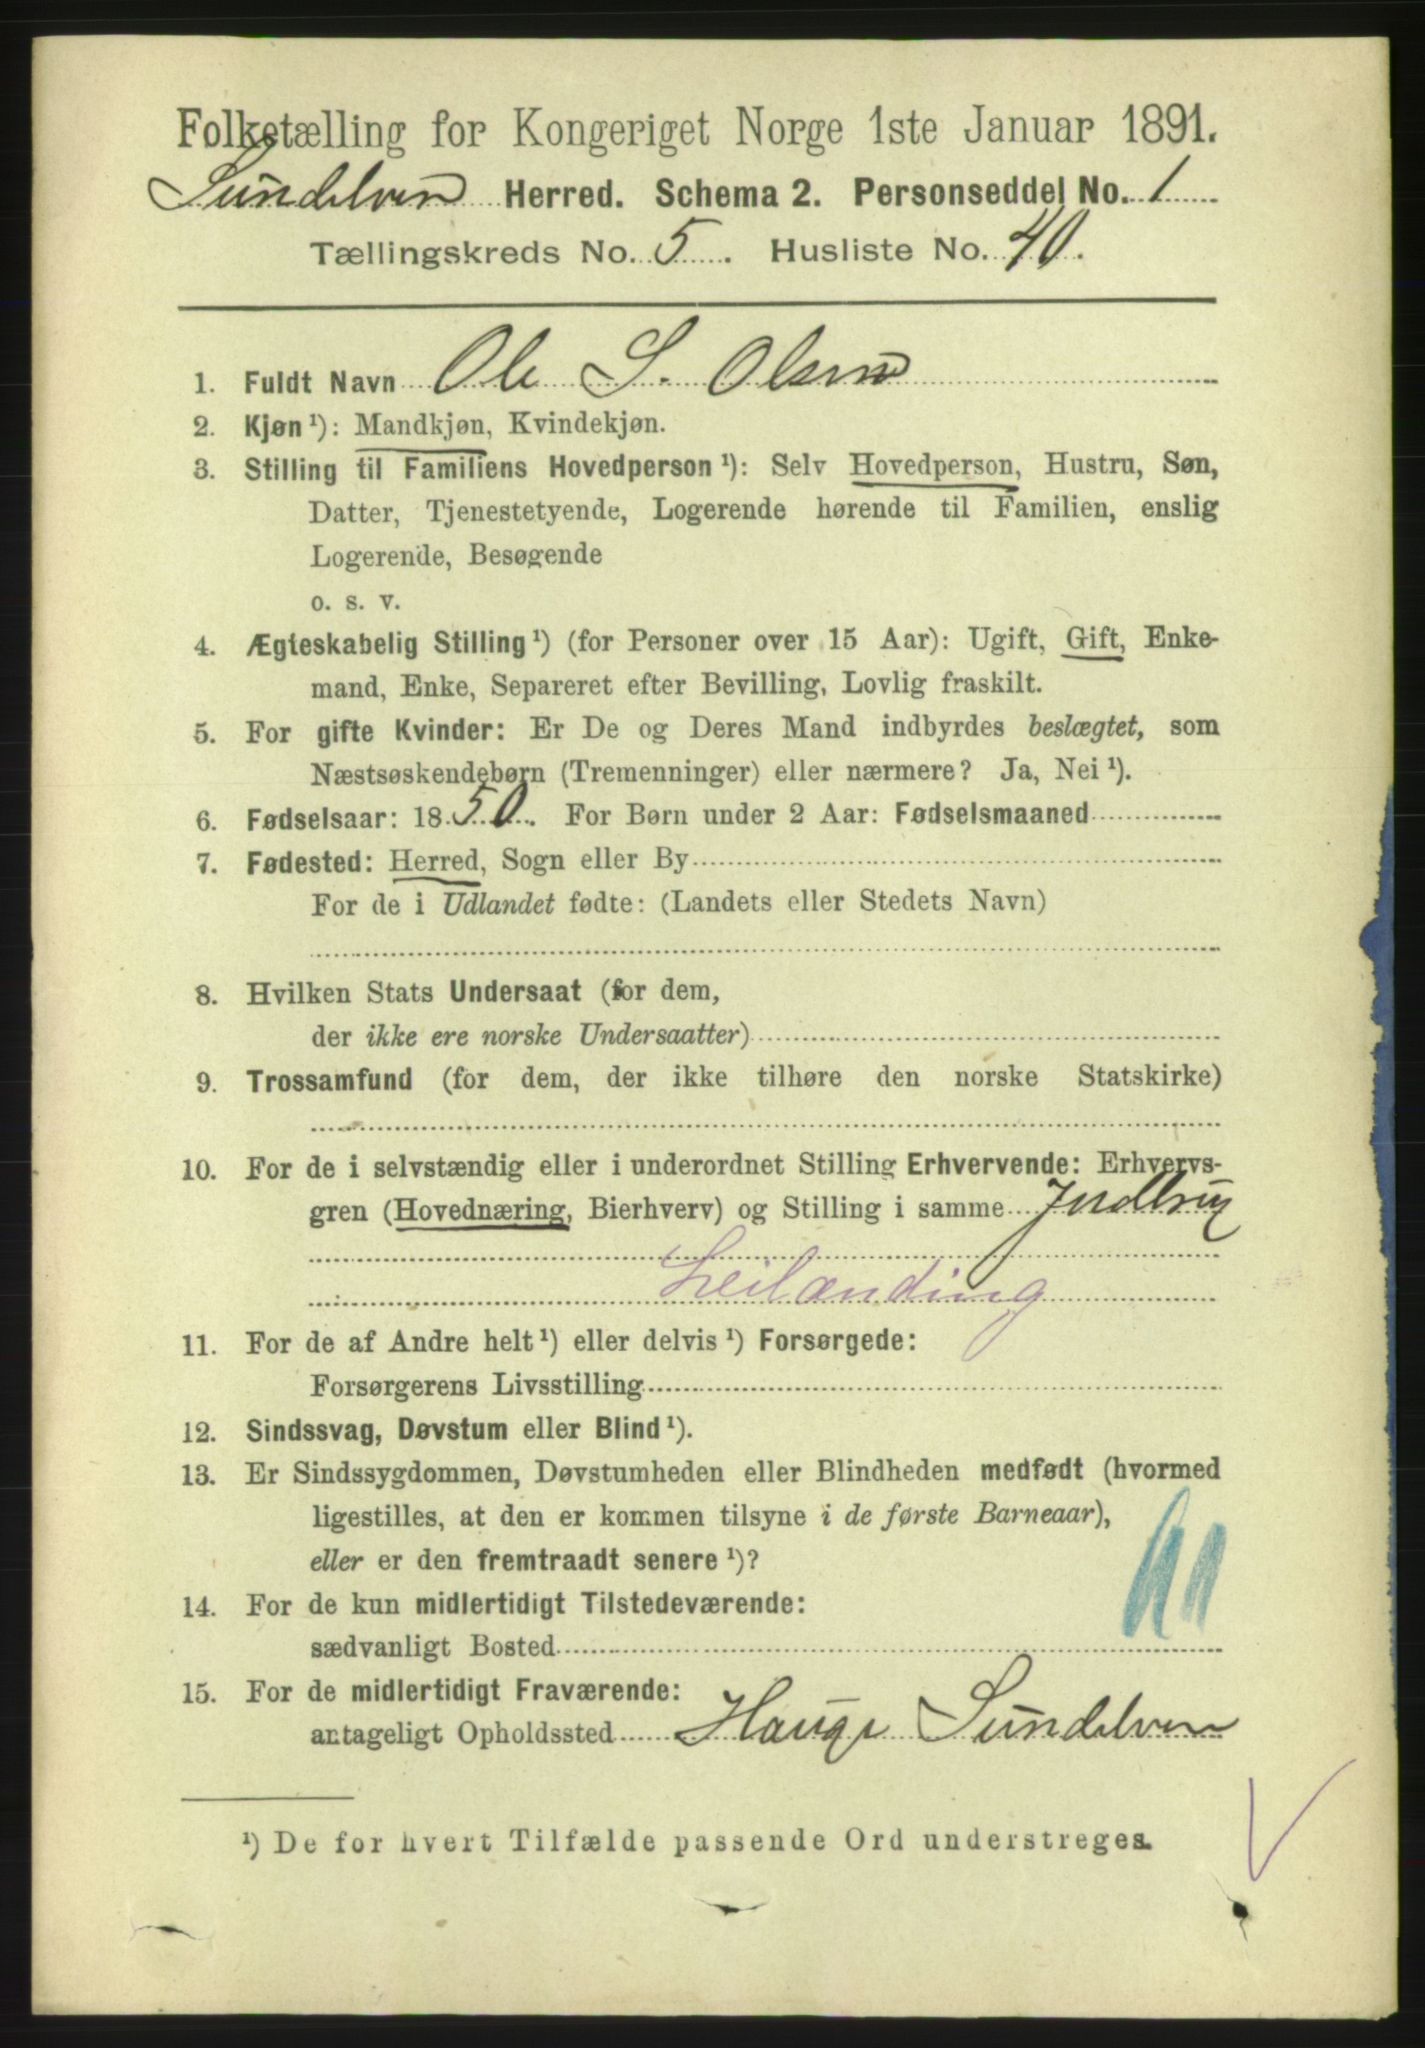 Folketælling for Kongeriget Norge 1ste Januar 1891.
Sundelven Herred. Schema 2. Personseddel No. 1
Tællingskreds No. 5. Husliste No. 40.
1. Fuldt Navn Ole S. Olsen
2. Kjøn¹): Mandkjøn, Kvindekjøn.
3. Stilling til Familiens Hovedperson¹): Selv Hovedperson, Hustru, Søn,
Datter, Tjenestetyende, Logerende hørende til Familien, enslig
Logerende, Besøgende
o. s. v.
4. Ægteskabelig Stilling¹) (for Personer over 15 Aar): Ugift, Gift, Enke-
mand, Enke, Separeret efter Bevilling, Lovlig fraskilt.
5. For gifte Kvinder: Er De og Deres Mand indbyrdes beslægtet, som
Næstsøskendebørn (Tremenninger) eller nærmere? Ja, Nei¹).
6. Fødselsaar: 1850. For Børn under 2 Aar: Fødselsmaaned
7. Fødested: Herred, Sogn eller By
For de i Udlandet fødte: (Landets eller Stedets Navn)
8. Hvilken Stats Undersaat (for dem,
der ikke ere norske Undersaatter)
9. Trossamfund (for dem, der ikke tilhøre den norske Statskirke)
10. For de i selvstændig eller i underordnet Stilling Erhvervende: Erhvervs-
gren (Hovednæring, Bierhverv) og Stilling i samme
Leilænding
11. For de af Andre helt¹) eller delvis¹) Forsørgede:
Forsørgerens Livsstilling
12. Sindssvag, Døvstum eller Blind¹).
13. Er Sindssygdommen, Døvstumheden eller Blindheden medfødt (hvormed
ligestilles, at den er kommen tilsyne i de første Barneaar),
eller er den fremtraadt senere¹)?
14. For de kun midlertidigt Tilstedeværende:
sædvanligt Bosted
15. For de midlertidigt Fraværende:
antageligt Opholdssted Hauge Sundelven
¹) De for hvert Tilfælde passende Ord understreges.